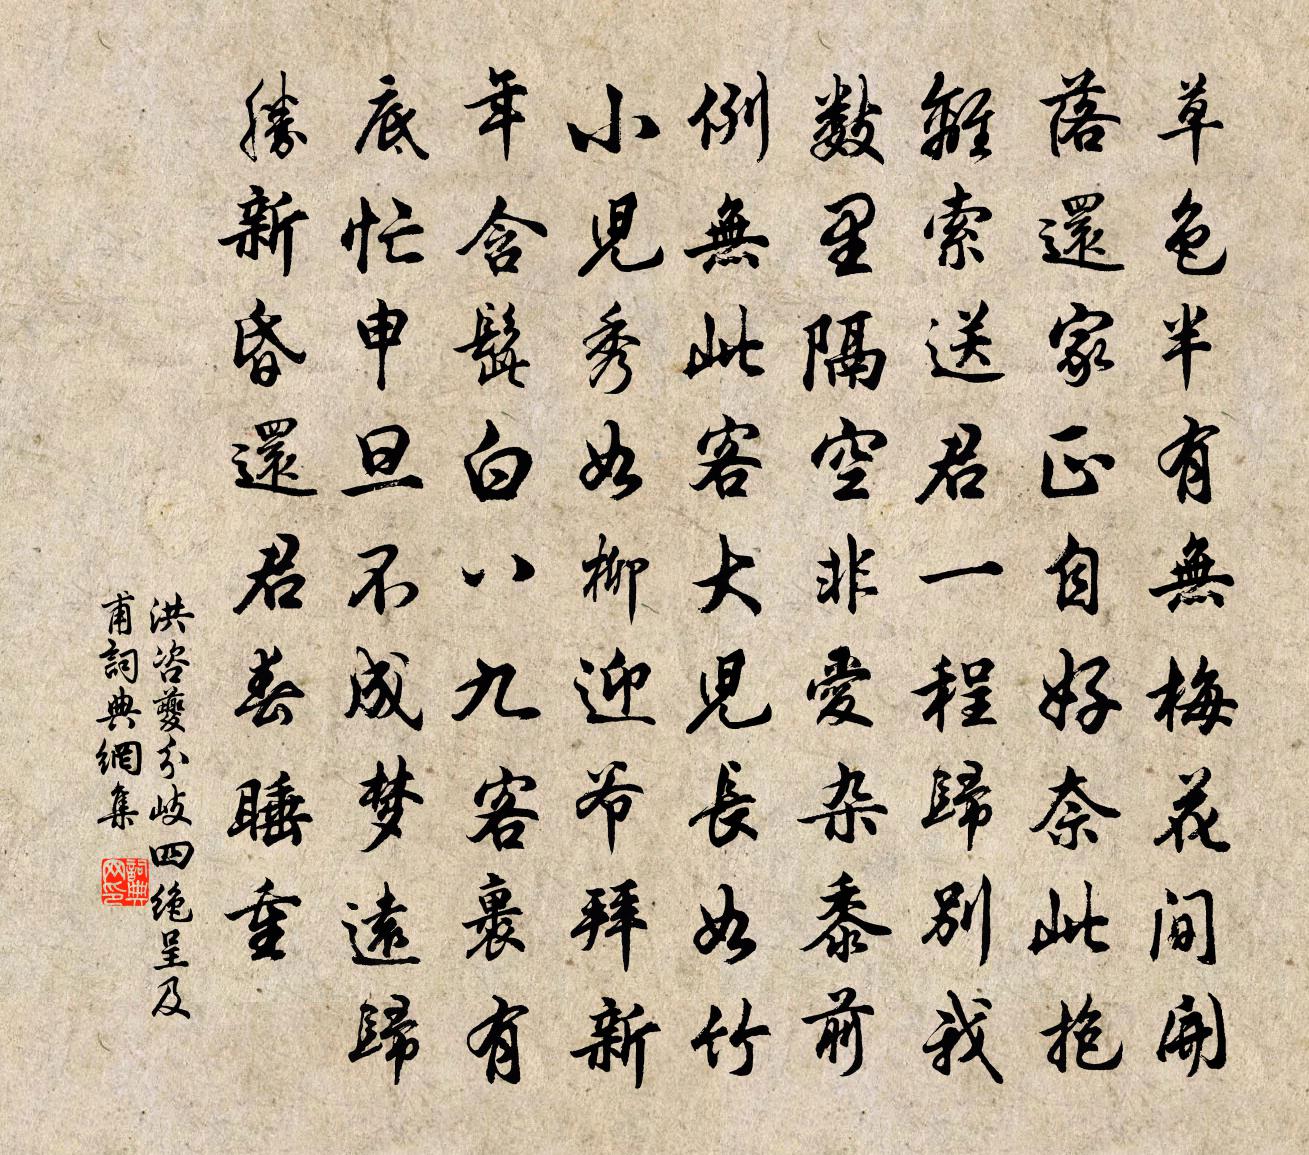 草色半有無梅花間開
落還家正自好奈此抱
離索送君一程歸別我
數里隔空非愛杂黍前
例無此客大兒長如竹
小兒秀如柳迎爷拜新
年含髭白八九客裏有
底忙申旦不成梦遠歸
勝新昏還君春睡重
洪咨夔分岐四絶呈及
甫詞典網集
詞典
网印